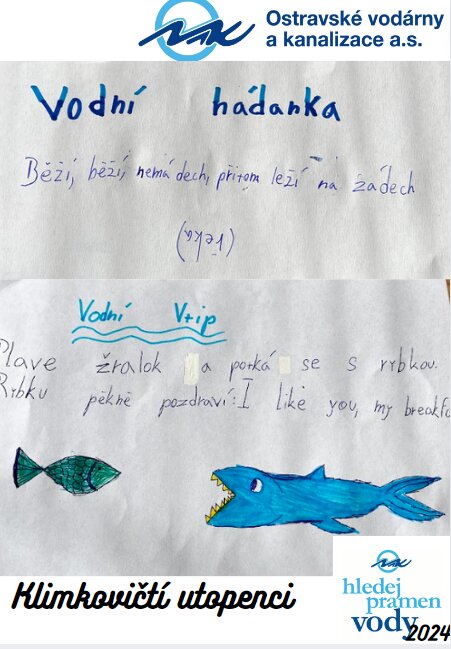 Ostravské vodárny
a kanalizace a.s.
Vodní hádanka
Běží, běží, nemá dech, přitom leží na zádech
(řeka)
Vodní Vtip
Plave žralok a potká se s rybkou.
Rybku pěkně pozdraví: I like you, my breakfa
Klimkovičtí utopenci
hledej
pramen
vody
2024